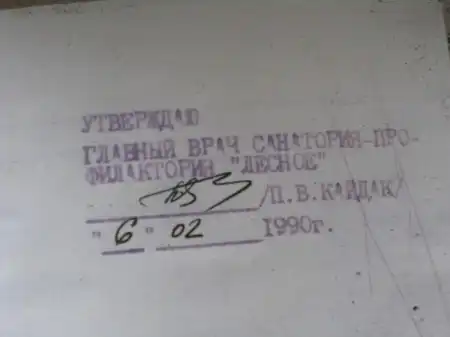 УТВЕРЖДАЮ
ГЛАВНЫЙ ВРАЧ САНАТОРИЯ-ПРО-
ФИЛАКТОРИЯ "ЛЕСНОЕ"
/П.В.КАЙДАК/
"6" 02 1990г.